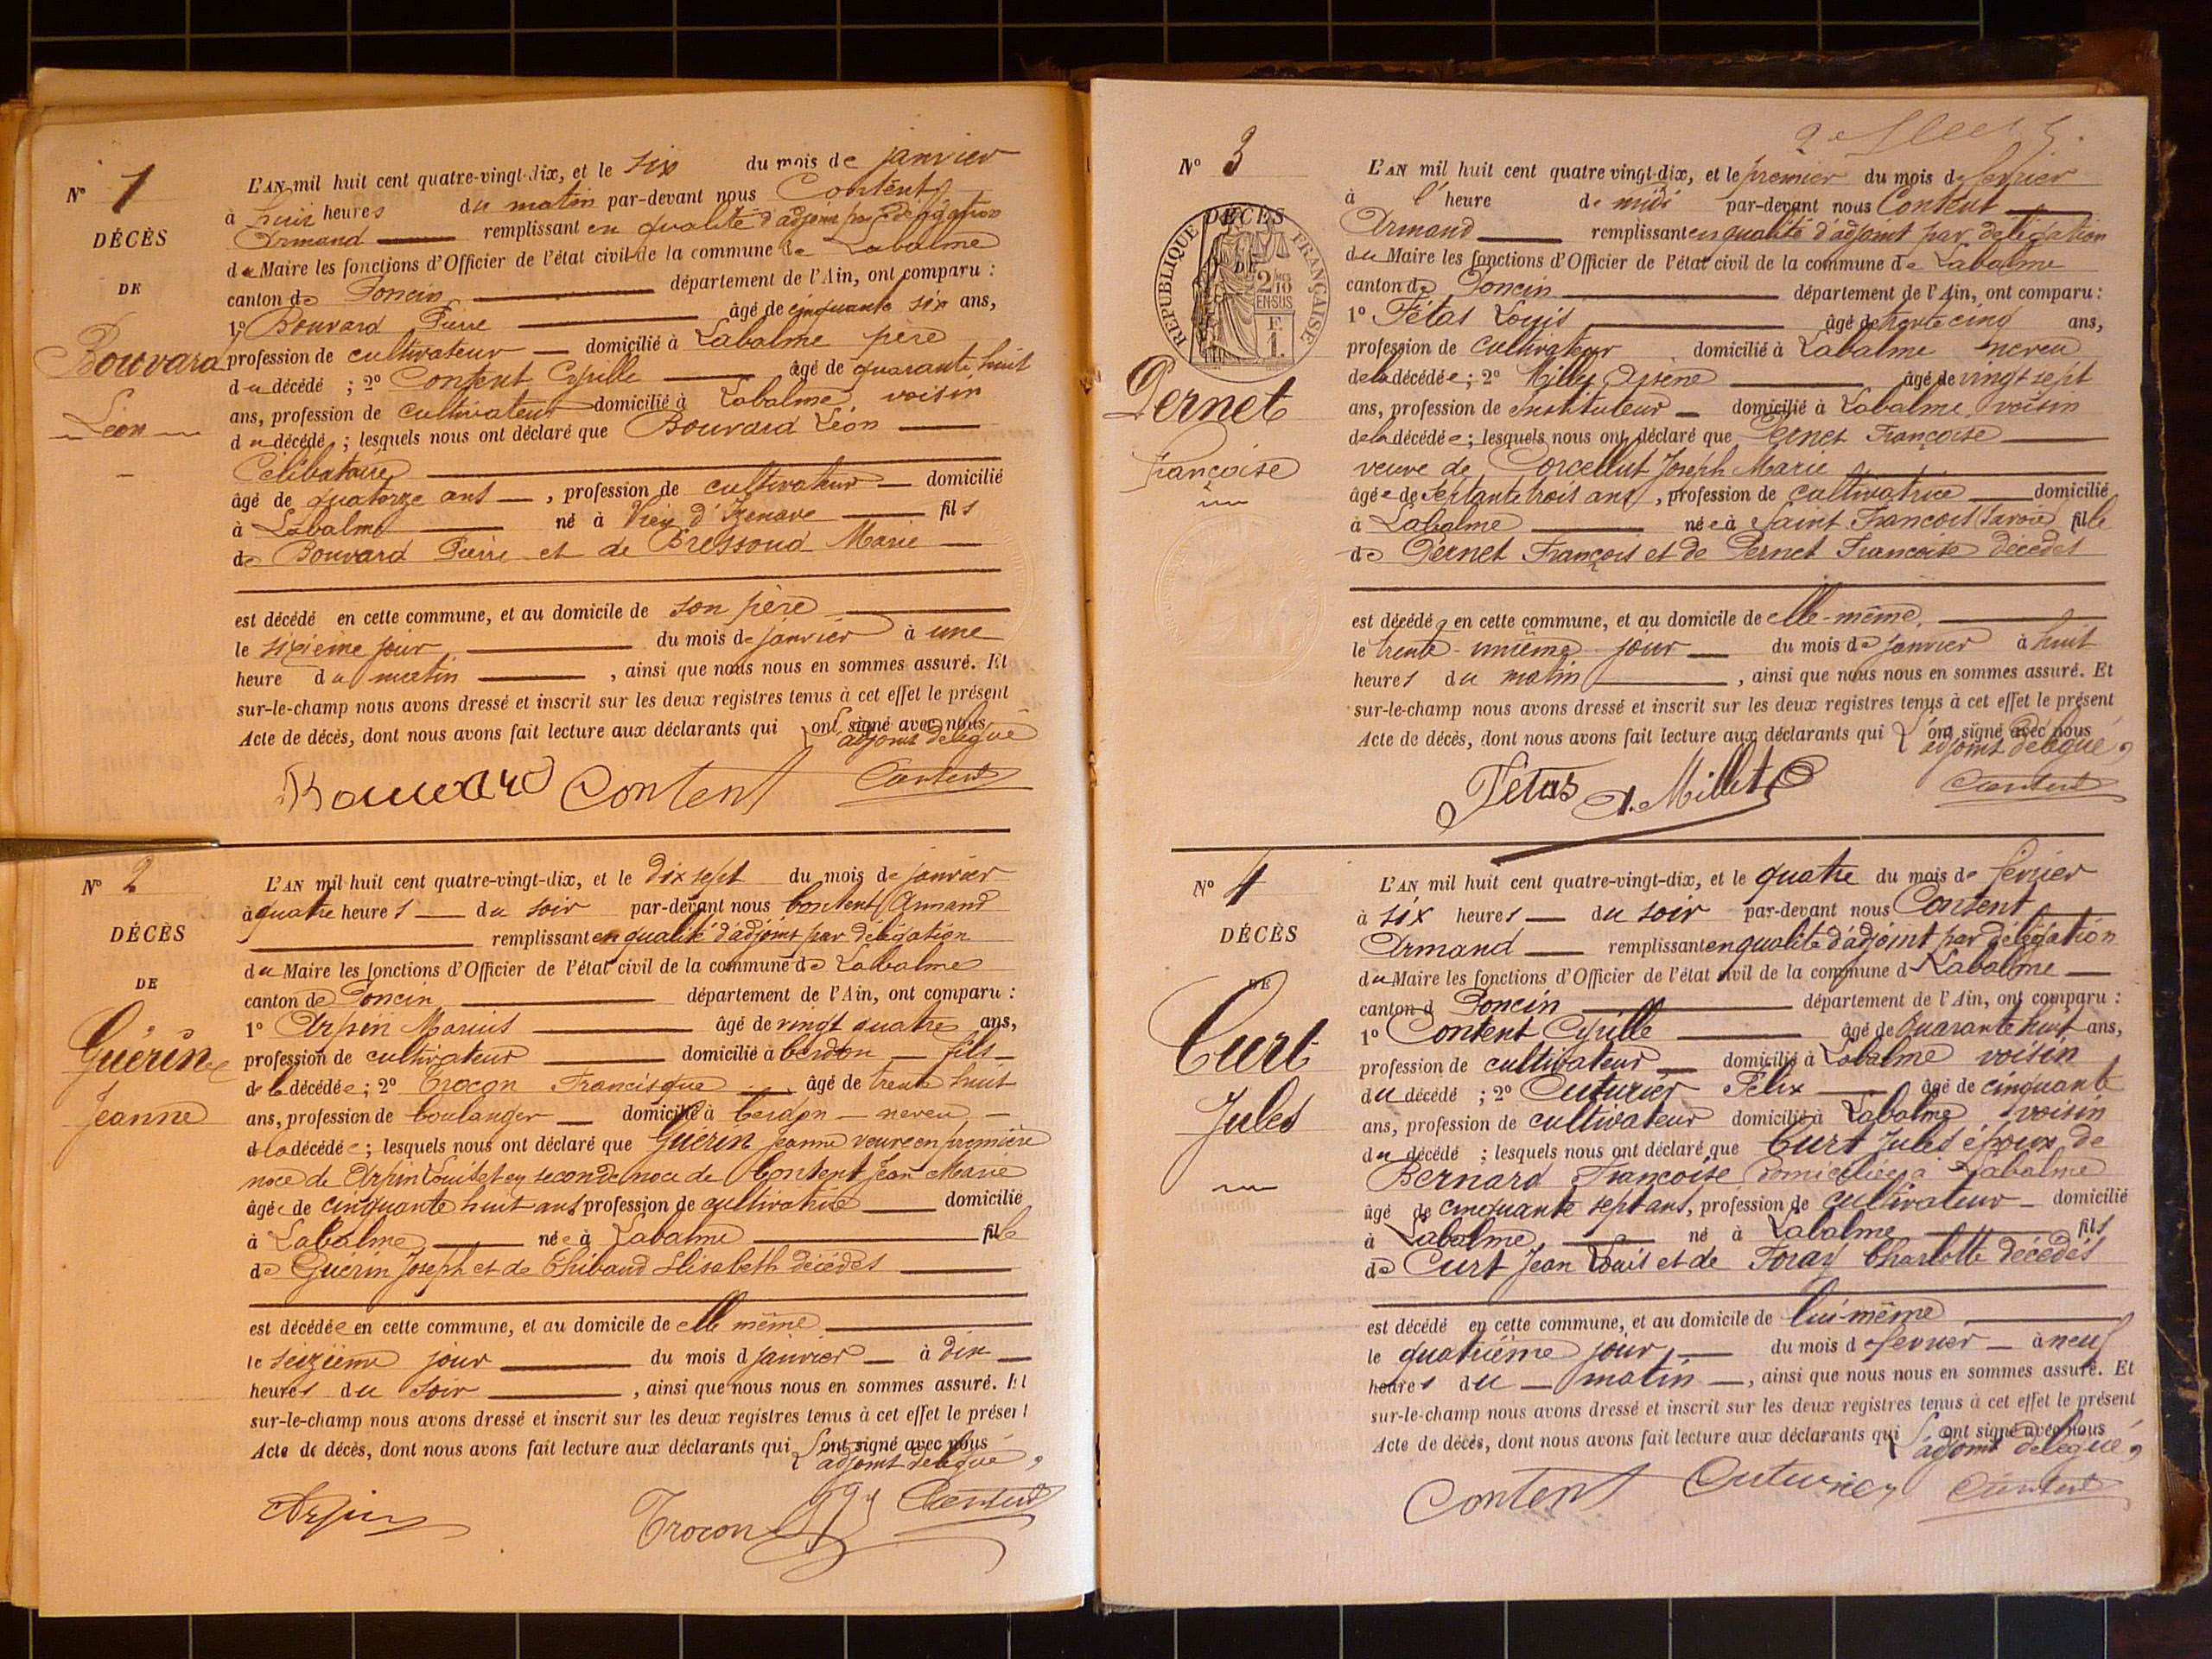 N° 1
DÉCÈS
DE
Bouvard
Léon
L'AN mil huit cent quatre-vingt-dix, et le six du mois de janvier
à huit heures du matin par-devant nous Content
Armand remplissant en qualité d'adjoint par délégation
du Maire les fonctions d'Officier de l'état civil de la commune de Labalme
canton de Poncin département de l'Ain, ont comparu :
1° Bouvard Pierre âgé de cinquante six ans,
profession de cultivateur domicilié à Labalme père
du décédé ; 2° Content Cyrille âgé de quarante huit
ans, profession de cultivateur domicilié à Labalme voisin
du décédé ; lesquels nous ont déclaré que Bouvard Léon
Célibataire
âgé de quatorze ans , profession de cultivateur domicilié
à Labalme né à Vieu d'Izenave fils
de Bouvard Pierre et de Bressoud Marie
est décédé en cette commune, et au domicile de son père
le sixième jour du mois de janvier à une
heure du matin , ainsi que nous nous en sommes assuré. Et
sur-le-champ nous avons dressé et inscrit sur les deux registres tenus à cet effet le présent
Acte de décès, dont nous avons fait lecture aux déclarants qui ont signé avec nous
adjoint délégué
Bouvard Content Content
N° 2
DÉCÈS
DE
Guérin
Jeanne
L'AN mil huit cent quatre-vingt-dix, et le dix sept du mois de janvier
à quatre heures du soir par-devant nous Content Armand
remplissant en qualité d'adjoint par délégation
du Maire les fonctions d'Officier de l'état civil de la commune de Labalme
canton de Poncin département de l'Ain, ont comparu :
1° Arpin Marius âgé de vingt quatre ans,
profession de cultivateur domicilié à Cerdon fils
de la décédée ; 2° Trocon Francisque âgé de trente huit
ans, profession de boulanger domicilié à Cerdon neveu
de la décédée ; lesquels nous ont déclaré que Guérin Jeanne veuve en première
noce de Arpin Louis et en seconde noce de Content Jean Marie
âgée de cinquante huit ans profession de cultivatrice domicilié
à Labalme née à Labalme fille
de Guérin Joseph et de Thibaud Elisabeth décédés
est décédée en cette commune, et au domicile de elle même
le seizième jour du mois d janvier à dix
heures du soir , ainsi que nous nous en sommes assuré. Et
sur-le-champ nous avons dressé et inscrit sur les deux registres tenus à cet effet le présent
Acte de décès, dont nous avons fait lecture aux déclarants qui ont signé avec nous
adjoint délégué,
Arpin Trocon Content
N° 3
DÉCÈS
DE
RÉPUBLIQUE FRANÇAISE
2/10 EN SUS
F 1.
Pernet
Françoise
L'AN mil huit cent quatre vingt-dix, et le premier du mois de février
à l'heure de midi par-devant nous Content
Armand remplissant en qualité d'adjoint par délégation
du Maire les fonctions d'Officier de l'état civil de la commune de Labalme
canton de Poncin département de l'Ain, ont comparu :
1° Fétas Louis âgé de trente cinq ans,
profession de cultivateur domicilié à Labalme neveu
de la décédée ; 2° Millet Arsène âgé de vingt sept
ans, profession de Instituteur domicilié à Labalme voisin
de la décédée ; lesquels nous ont déclaré que Pernet Françoise
veuve de Porcellut Joseph Marie
âgée de septante trois ans , profession de cultivatrice domicilié
à Labalme née à Saint François (Savoie) fille
de Pernet François et de Pernet Françoise décédés
est décédée en cette commune, et au domicile de elle-même,
le trente-unième jour du mois de janvier à huit
heures du matin , ainsi que nous nous en sommes assuré. Et
sur-le-champ nous avons dressé et inscrit sur les deux registres tenus à cet effet le présent
Acte de décès, dont nous avons fait lecture aux déclarants qui ont signé avec nous
adjoint délégué,
Fétas A. Millet Content
N° 4
DÉCÈS
DE
Curt
Jules
L'AN mil huit cent quatre-vingt-dix, et le quatre du mois de février
à six heures du soir par-devant nous Content
Armand remplissant en qualité d'adjoint par délégation
du Maire les fonctions d'Officier de l'état civil de la commune d Labalme
canton d Poncin département de l'Ain, ont comparu :
1° Content Cyrille âgé de Quarante huit ans,
profession de cultivateur domicilié à Labalme voisin
du décédé ; 2° Cuturier Félix âgé de cinquante
ans, profession de cultivateur domicilié à Labalme voisin
du décédé ; lesquels nous ont déclaré que Curt Jules époux de
Bernard Françoise domiciliée à Labalme
âgé de cinquante sept ans, profession de cultivateur domicilié
à Labalme, né à Labalme fils
de Curt Jean Louis et de Foray Charlotte décédés
est décédé en cette commune, et au domicile de lui-même
le quatrième jour, du mois d février à neuf
heures du matin , ainsi que nous nous en sommes assuré. Et
sur-le-champ nous avons dressé et inscrit sur les deux registres tenus à cet effet le présent
Acte de décès, dont nous avons fait lecture aux déclarants qui ont signé avec nous
adjoint délégué,
Content Cuturier Content